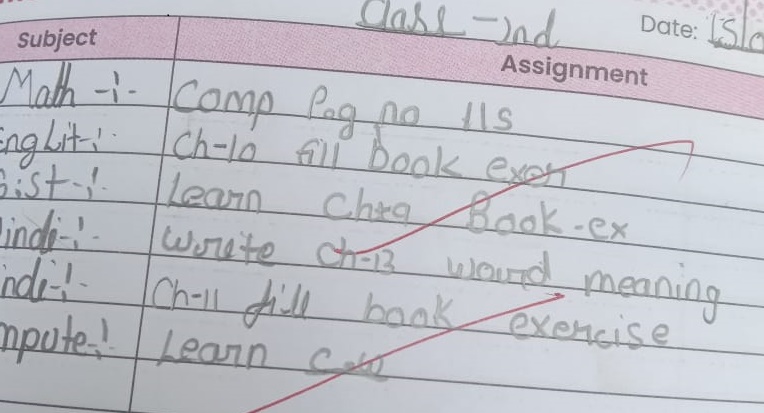 Class - 2nd
Date: 15/0
Subject Assignment
Math -:- Comp Pag no 115
Eng Lit -:- Ch-10 fill book exen
G.ist -:- Learn Ch Book-ex
indi -:- Worute Ch-13 wourd meaning
ndi -:- Ch-11 fill book exencise
mpute -:- Learn